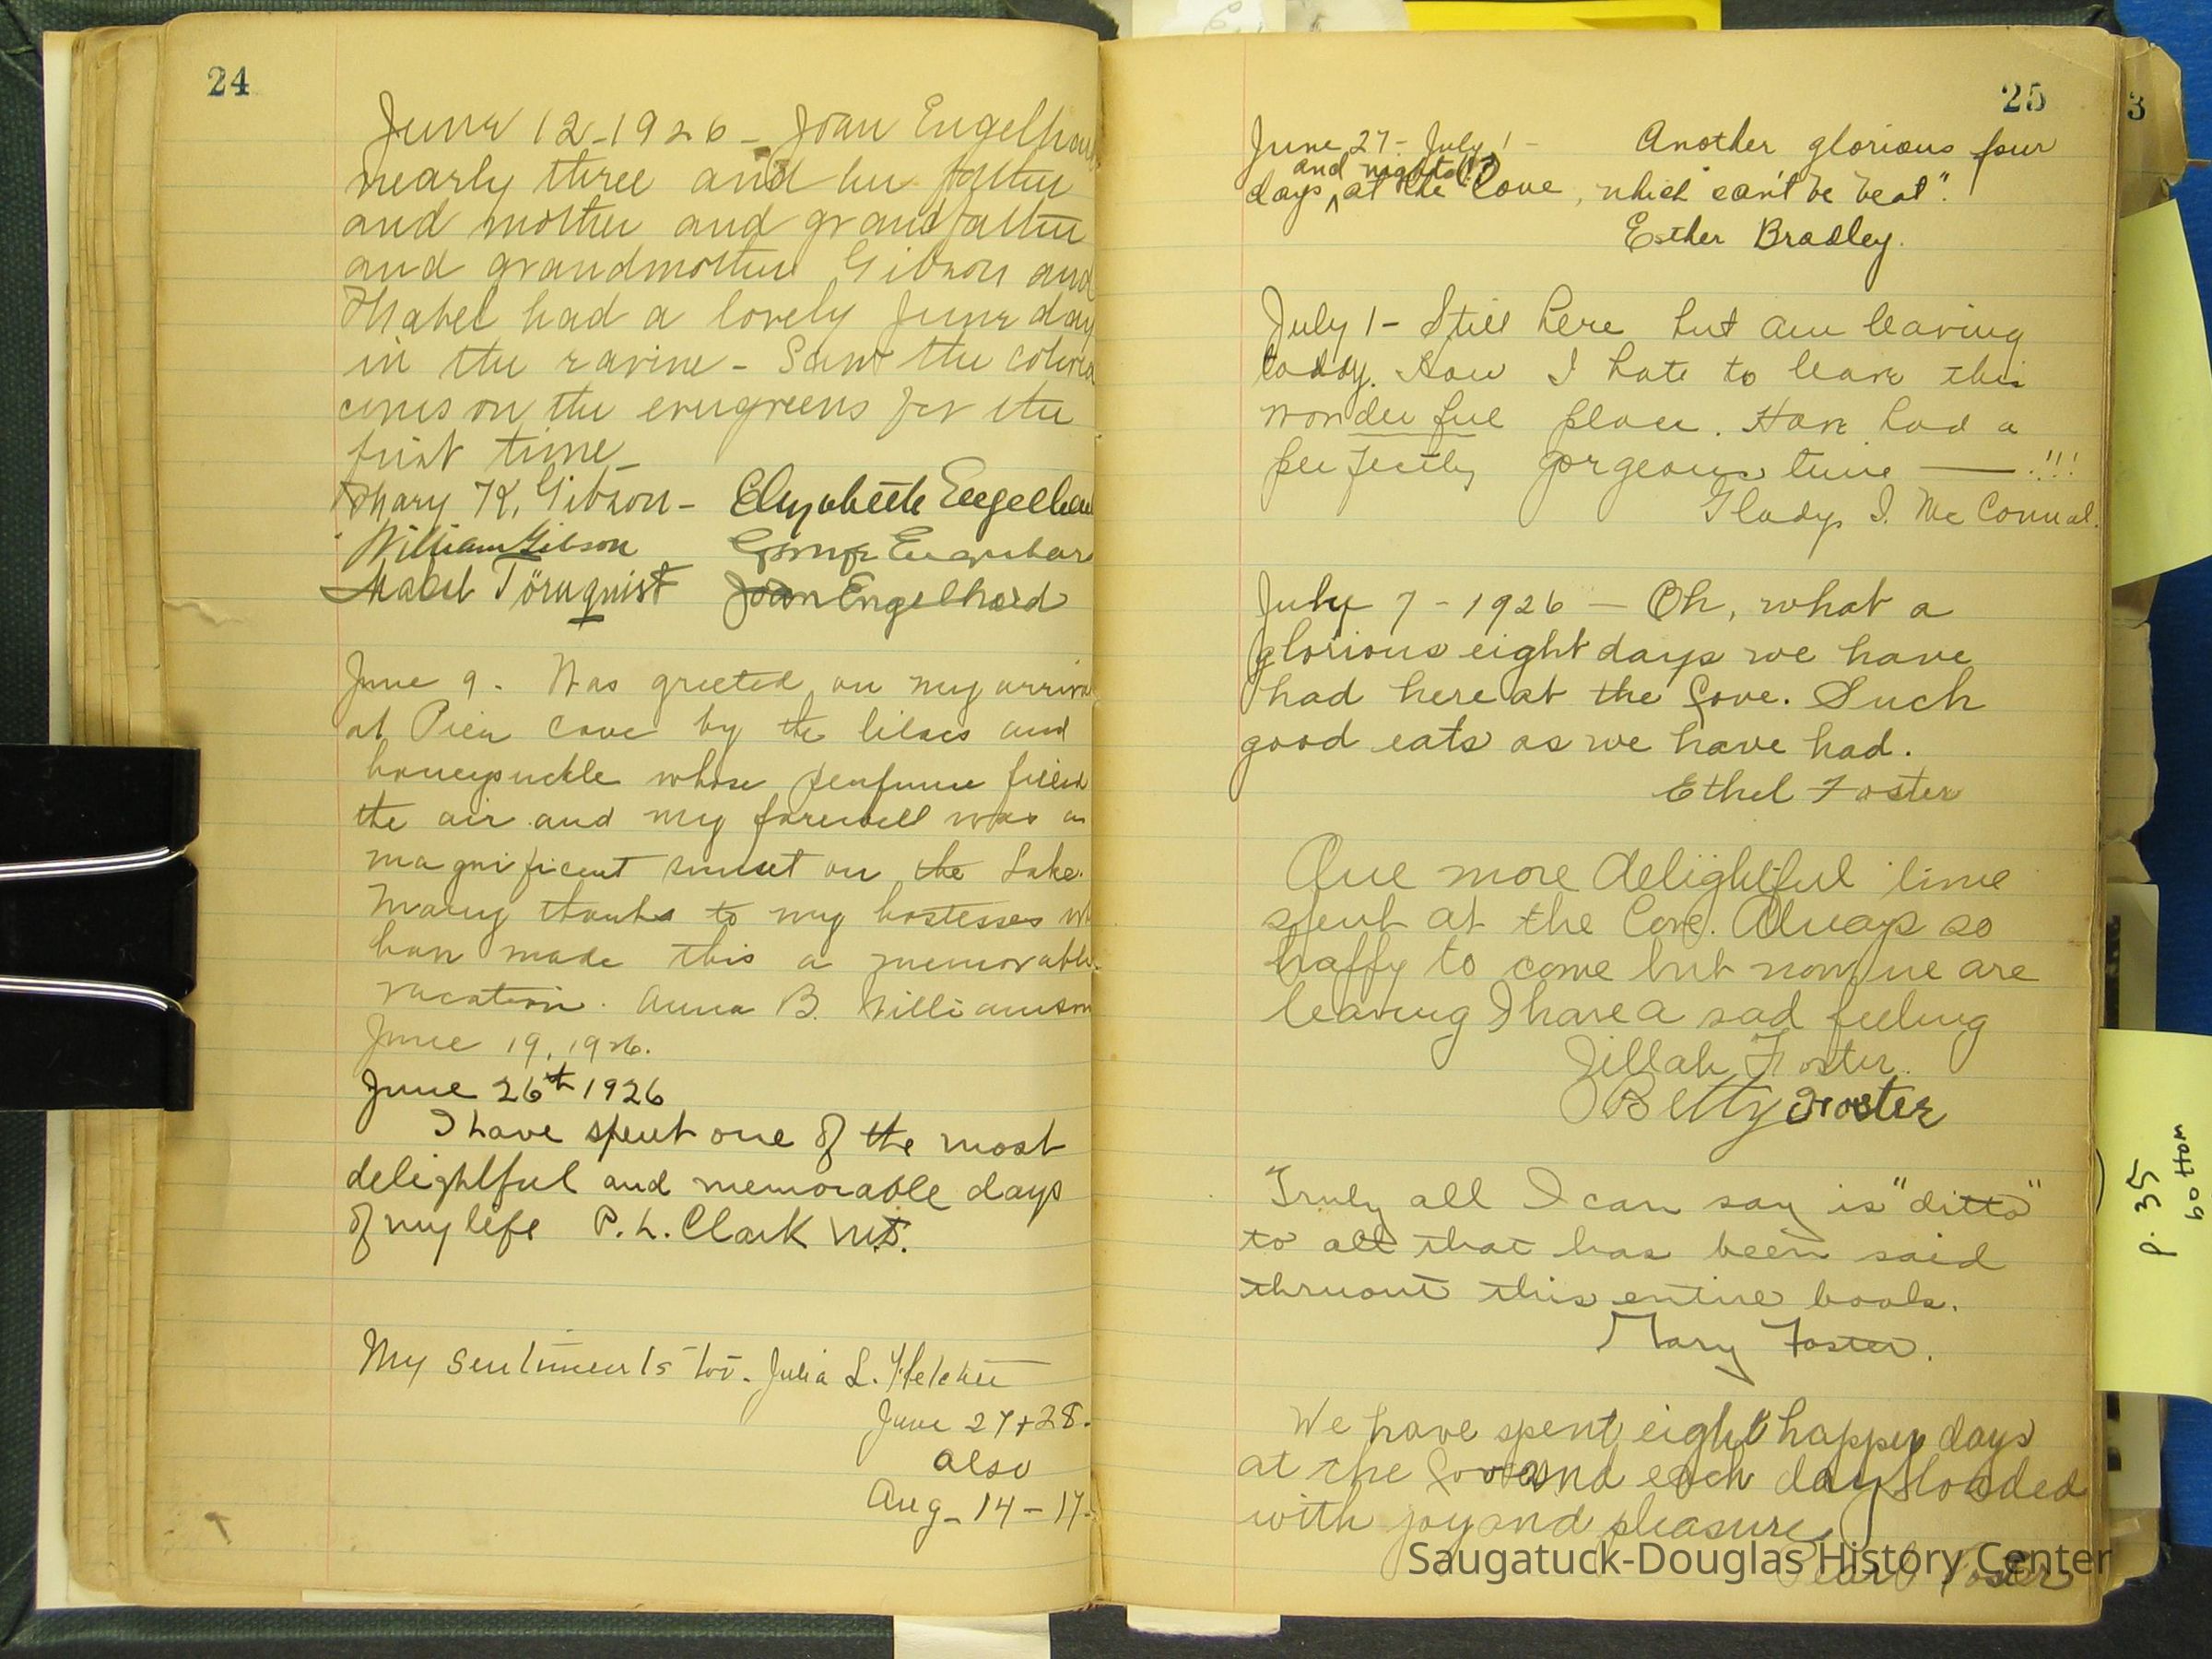 24
June 12-1926 - Joan Engelhar
nearly three and her father
and mother and grandfather
and grandmother Gibson and
Mabel had a lovely June day
in the ravine - Saw the
cones on the evergreens for the
first time -
Mary K. Gibson - Elizabeth Engelhar
William Gibson George Engelhar
Mabel Törnquist Joan Engelhard
June 9. Was greeted on my arriva
at Pier Cove by the lilacs and
honeysuckle whose perfume filled
the air and my farewell was a
magnificent sunset on the Lake.
Many thanks to my hostesses wh
have made this a memorable
vacation. Anna B. Williamson
June 19, 1926.
June 26th 1926
I have spent one of the most
delightful and memorable days
of my life P. L. Clark
My sentiments too. Julia L. Fletcher
June 27 + 28.
also
Aug - 14 - 17-
25
June 27 - July 1 - Another glorious four
and nights!!
days ^ at the Cove, which "can't be beat".
Esther Bradley.
July 1 - Still here but am leaving
today. How I hate to leave this
wonderful place. Have had a
perfectly gorgeous time — .!!!
Gladys I. Mc Connal.
July 7 - 1926 — Oh, what a
glorious eight days we have
had here at the Cove. Such
good eats as we have had.
Ethel Foster
One more delightful time
spent at the Cove. Always so
happy to come but now we are
leaving I have a sad feeling
Zillah Foster.
Betty Foster
Truly all I can say is "ditto"
to all that has been said
thruout this entire book.
Mary Foster.
We have spent eight happy days
at the Cove and each day loaded
with joy and pleasure,
Pearl Foster
Saugatuck-Douglas History Center
3
p. 35
bottom